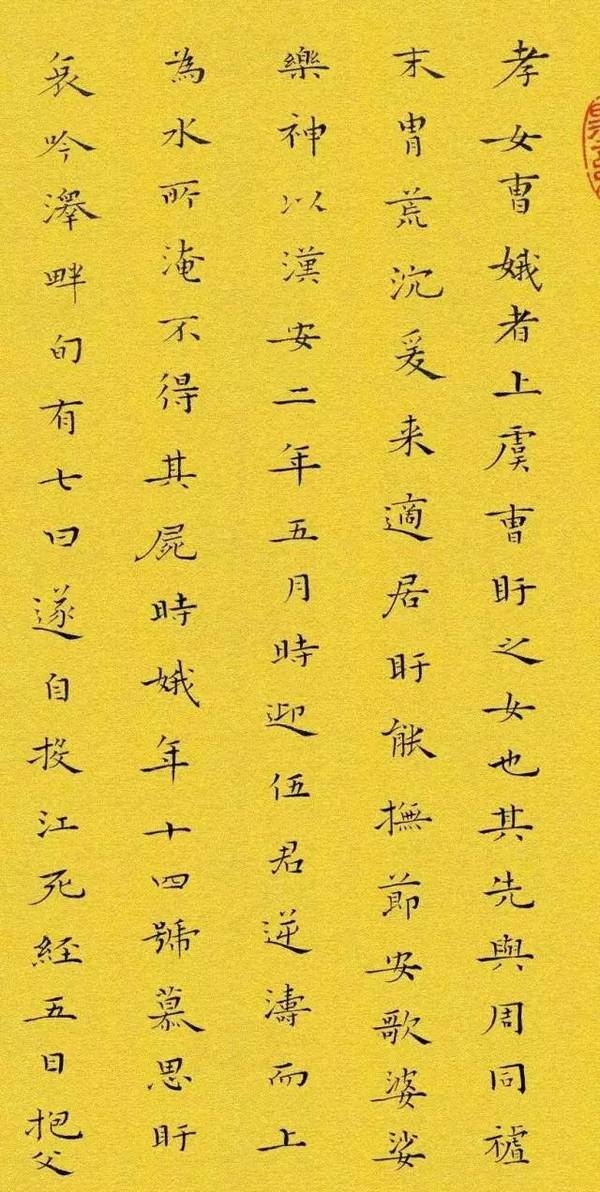 孝女曹娥者上虞曹盱之女也其先與周同
末冑荒沈爰来適居盱能撫節安歌婆娑
樂神以漢安二年五月時迎伍君逆濤而上
為水所淹不得其屍時娥年十四號慕思盱
哀吟澤畔旬有七日遂自投江死經五日抱父